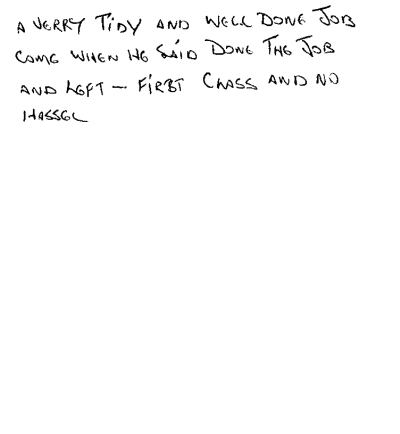 A VERRY TiDY AND WELL DONE JOB
COME WHEN HE SAiD DONE THE JOB
AND LEFT — FiRST CLASS AND NO
HASSEL